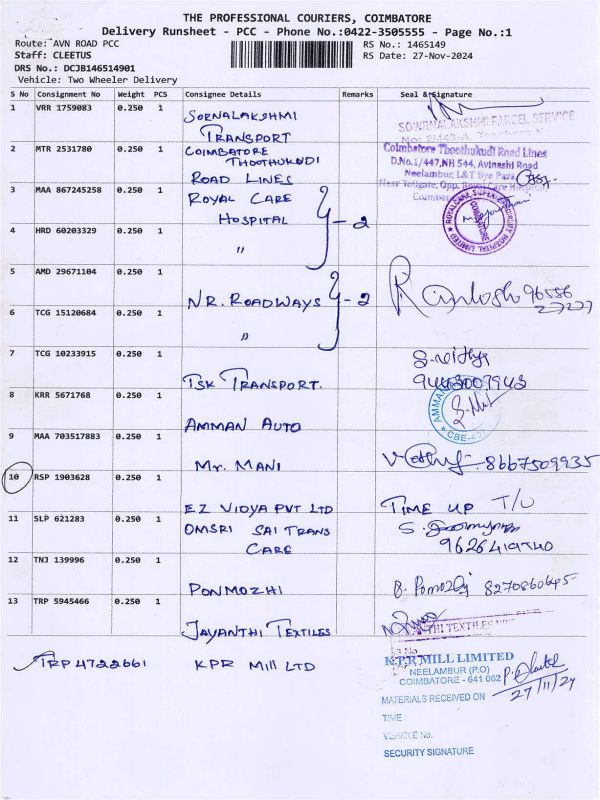 THE PROFESSIONAL COURIERS, COIMBATORE
Delivery Runsheet - PCC - Phone No.:0422-3505555 - Page No.:1
Route: AVN ROAD PCC
RS No.: 1465149
Staff: CLEETUS
RS Date: 27-Nov-2024
DRS No.: DCJB146514901
Vehicle: Two Wheeler Delivery
S No Consignment No Weight PCS Consignee Details Remarks Seal & Signature
1 VRR 1759083 0.250 1 SORNALAKSHMI
TRANSPORT
SOWRNALAKSHMI PARCEL SERVICE
2 MTR 2531780 0.250 1 COIMBATORE
THOOTHUKUDI
ROAD LINES
Coimbatore Thoothukudi Road Lines
D.No.1/447,NH 544, Avinashi Road
Neelambur, L&T Bye Pass
Near Tollgate, Opp. Royal Care Hospital
3 MAA 867245258 0.250 1 ROYAL CARE
HOSPITAL
- 2
4 HRD 60203329 0.250 1 "
5 AMD 29671104 0.250 1
NR. ROADWAYS - 2
6 TCG 15120684 0.250 1 "
7 TCG 10233915 0.250 1
TSK TRANSPORT.
9443007943
8 KRR 5671768 0.250 1
AMMAN AUTO
9 MAA 703517883 0.250 1
Mr. MANI
8667509935
10 RSP 1903628 0.250 1
EZ VIDYA PVT LTD TIME UP T/U
11 SLP 621283 0.250 1 OMSRI SAI TRANS
CARE
12 TNJ 139996 0.250 1
PONMOZHI
13 TRP 5945466 0.250 1
JAYANTHI TEXTILES
TRP 4722661 KPR MILL LTD
K.P.R MILL LIMITED
NEELAMBUR (P.O)
COIMBATORE - 641 062
MATERIALS RECEIVED ON 27/11/24
TIME
VEHICLE No.
SECURITY SIGNATURE